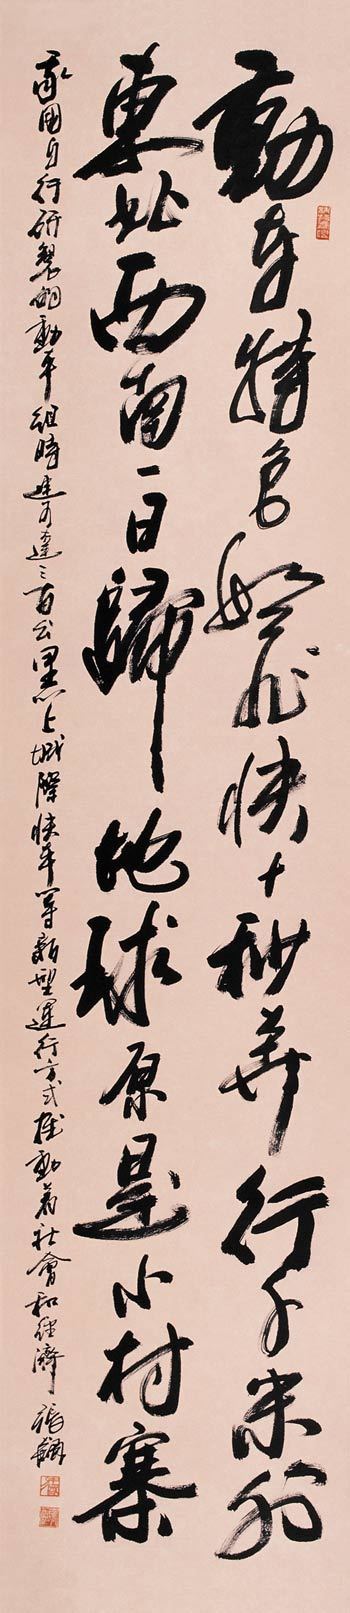 動車特急飛快十秒行千米外
東北西南一日歸地球原是小村寨
我國自行研製的動車組時速可達三百公里以上城際快車等新型運行方式推動着社會和經濟 張飆